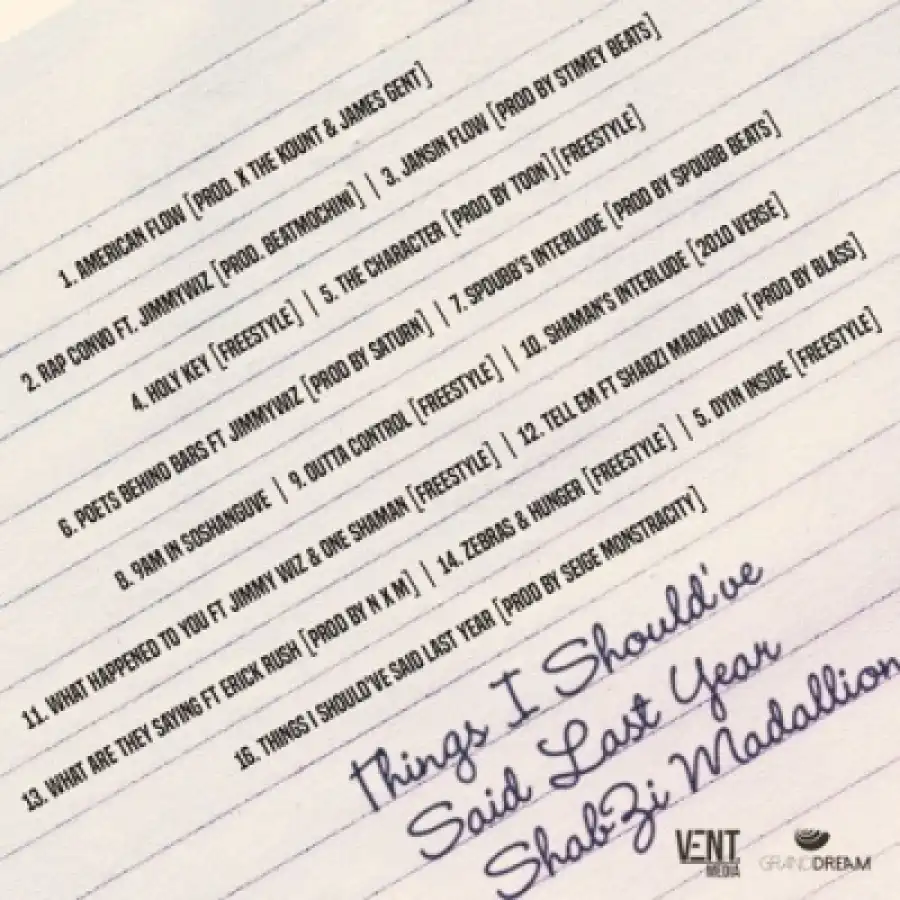 1. AMERICAN FLOW [PROD. X THE KOUNT & JAMES GENT]
2. RAP CONVO FT. JIMMYWIZ [PROD. BEATMOCHINI] | 3. JANSIN FLOW [PROD BY STIMEY BEATS]
4. HOLY KEY [FREESTYLE] | 5. THE CHARACTER [PROD BY TOON] [FREESTYLE]
6. POETS BEHIND BARS FT JIMMYWIZ [PROD BY SATURN] | 7. SPDUBB'S INTERLUDE [PROD BY SPDUBB BEATS]
8. 9AM IN SOSHANGUVE | 9. OUTTA CONTROL [FREESTYLE] | 10. SHAMAN'S INTERLUDE [2010 VERSE]
11. WHAT HAPPENED TO YOU FT JIMMY WIZ & ONE SHAMAN [FREESTYLE] | 12. TELL EM FT SHABZI MADALLION [PROD BY BLASS]
13. WHAT ARE THEY SAYING FT ERICK RUSH [PROD BY N X M] | 14. ZEBRAS & HUNGER [FREESTYLE] | 5. DYIN INSIDE [FREESTYLE]
16. THINGS I SHOULD'VE SAID LAST YEAR [PROD BY SEIGE MONSTRACITY]
Things I Should've
Said Last Year
ShabZi Madallion
VENT MEDIA
GRANDDREAM